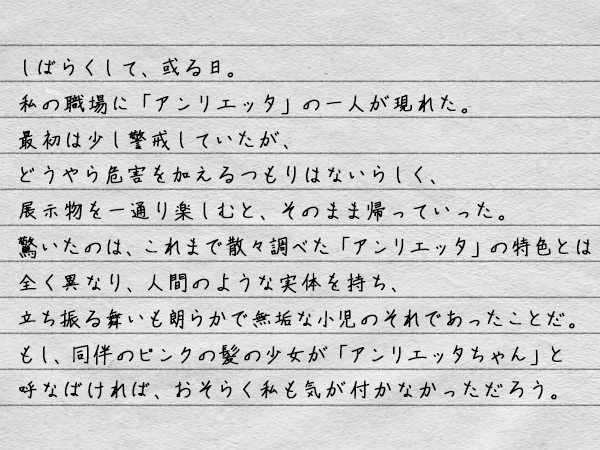 しばらくして、或る日。
私の職場に「アンリエッタ」の一人が現れた。
最初は少し警戒していたが、
どうやら危害を加えるつもりはないらしく、
展示物を一通り楽しむと、そのまま帰っていった。
驚いたのは、これまで散々調べた「アンリエッタ」の特色とは
全く異なり、人間のような実体を持ち、
立ち振る舞いも朗らかで無垢な小児のそれであったことだ。
もし、同伴のピンクの髪の少女が「アンリエッタちゃん」と
呼なばければ、おそらく私も気が付かなかっただろう。